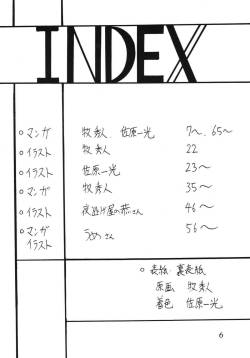 INDEX
○ マンガ 牧秀人 佐原一光 7〜、65〜
○ イラスト 牧秀人 22
○ イラスト 佐原一光 23〜
○ マンガ 牧秀人 35〜
○ イラスト 夜逃げ屋の恭さん 46〜
○ マンガ うめ さん 56〜
イラスト
○ 表紙・裏表紙
原画 牧秀人
着色 佐原一光
6